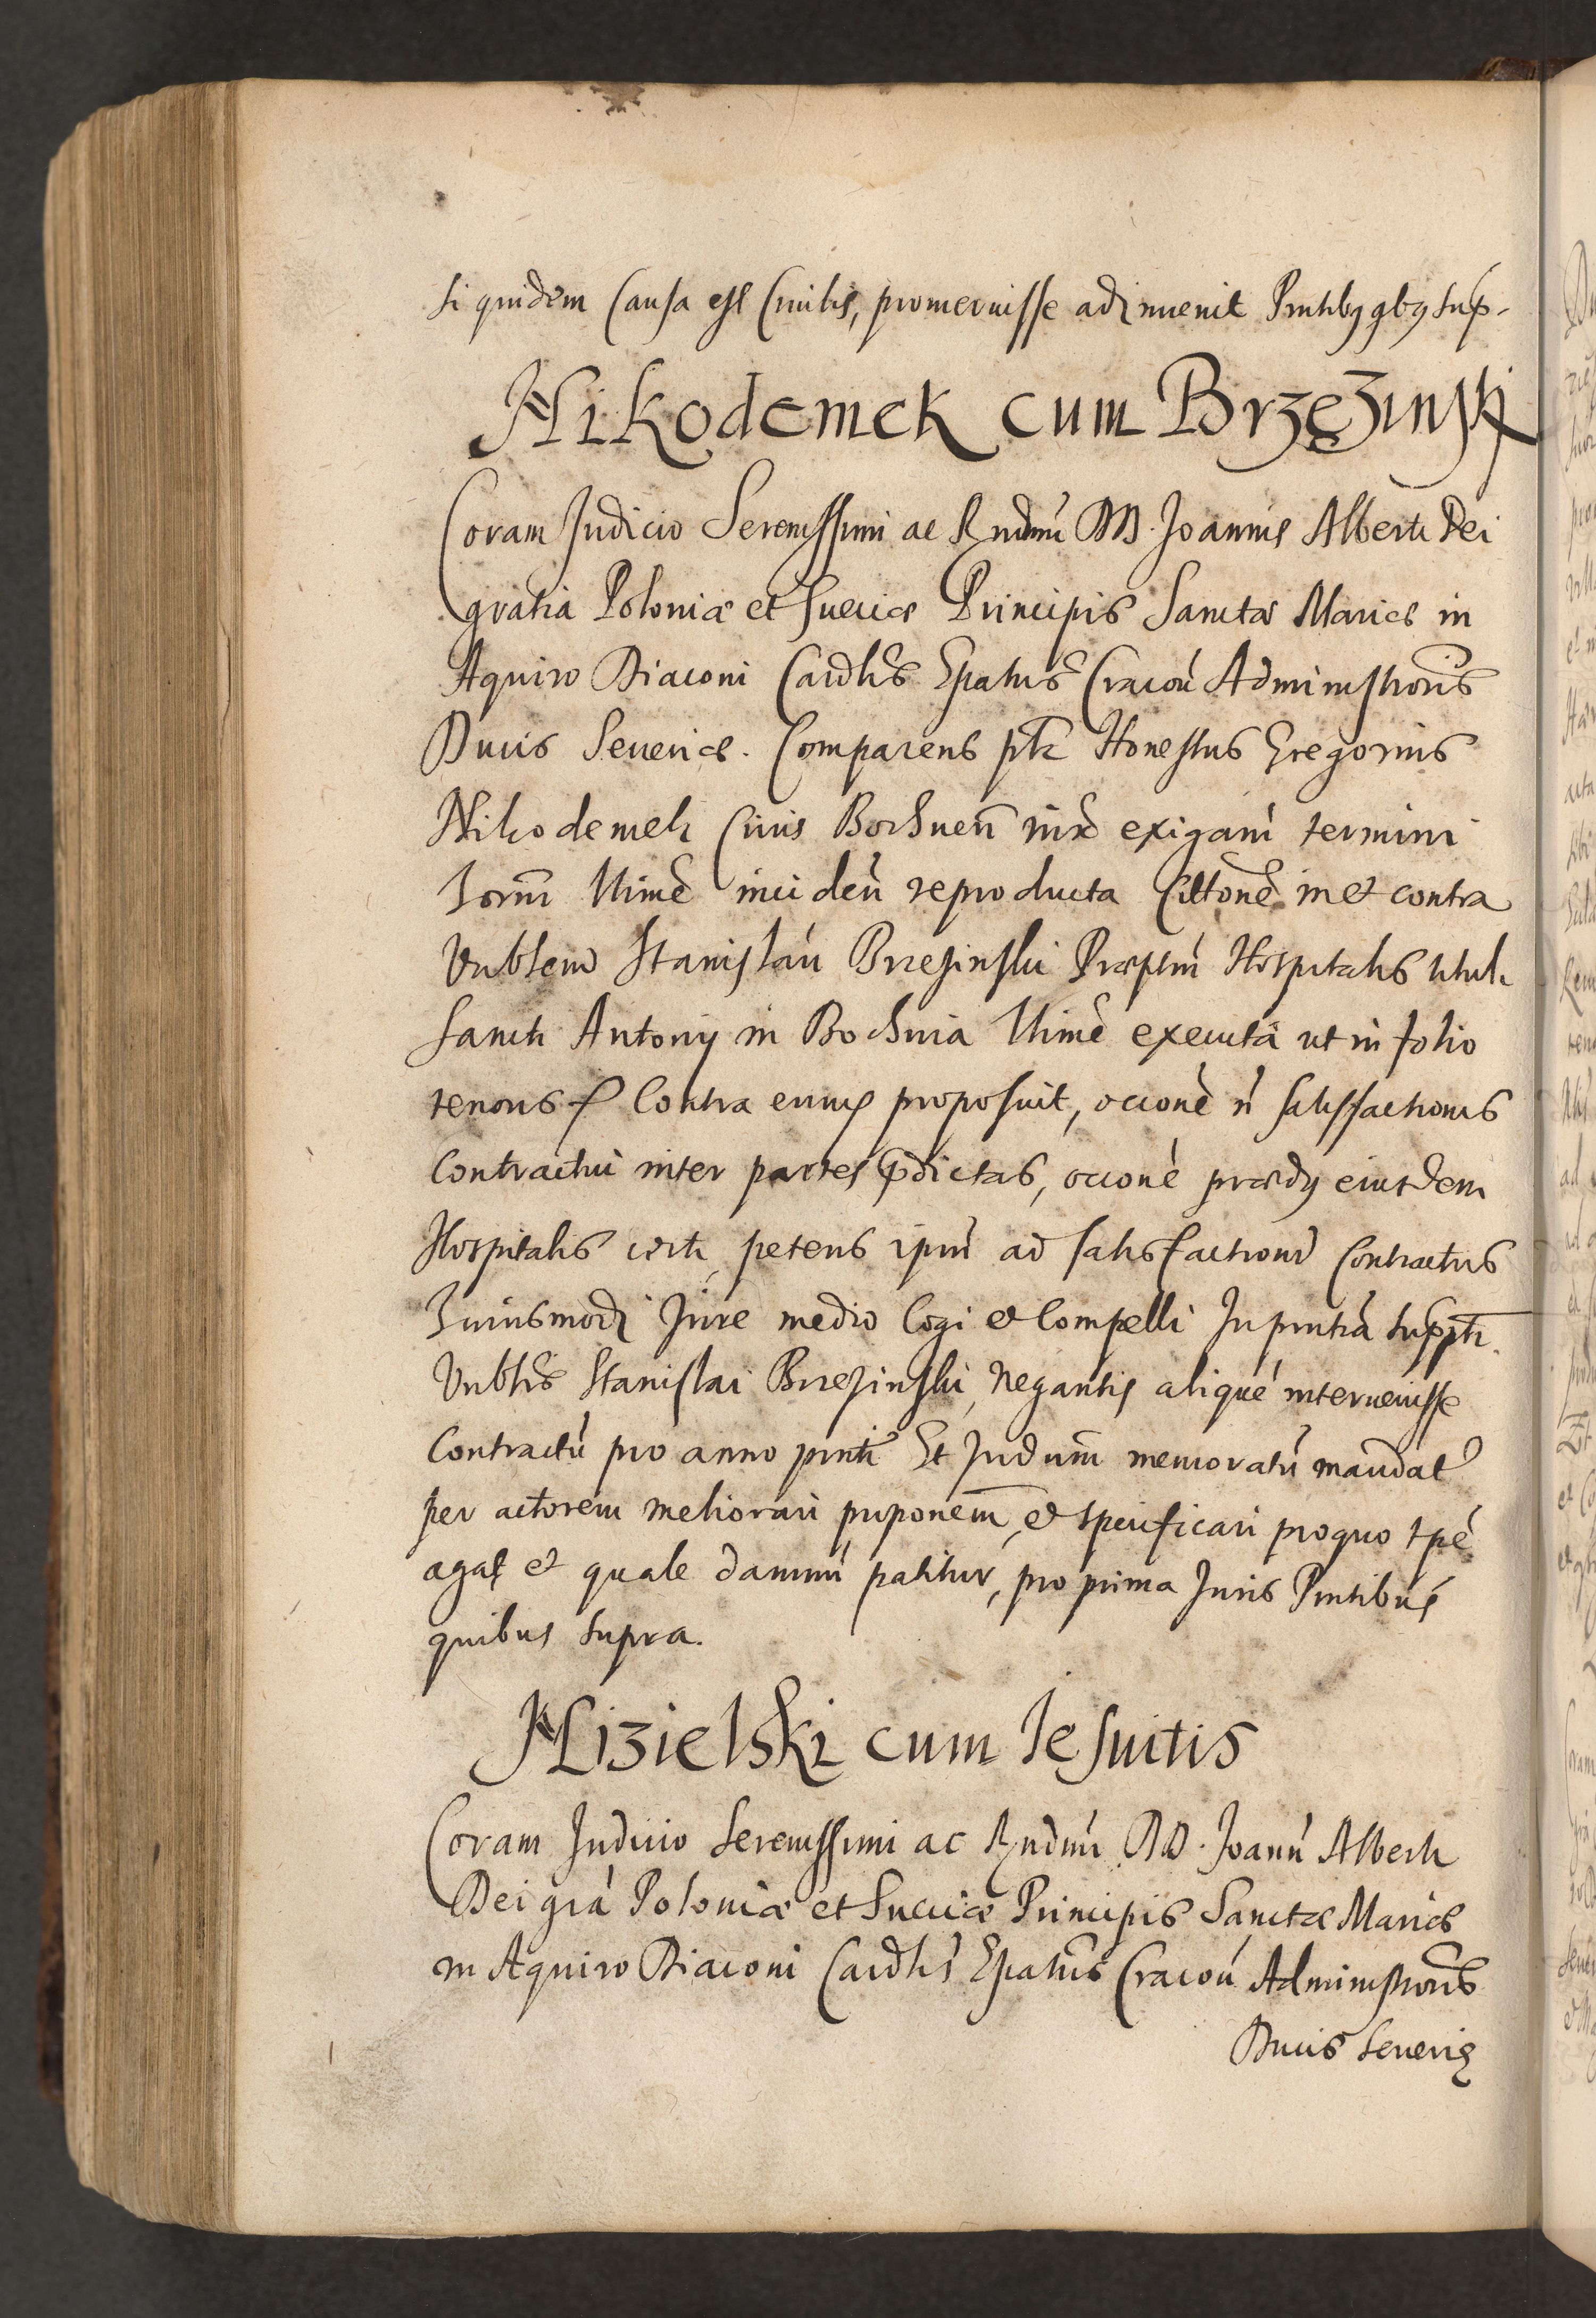 siquidem Causa est Ciuilis, promeruisse adinuenit Pntibq qbq sup.
Nikodemek cum Brzęzinsk
Coram Judicio Serenissimi ac Rndmi DD. Joannis Alberti Dei
gratia Poloniæ et Sueciæ Principis Sanctæ Mariæ in
Aquiro Diaconi Cardlis Epatus Cracou Administroris
Ducis Seueriæ. Comparens Honestus Gregorius
Nikodemek Ciuis Bochnen exigam termini
horni ltime inciden reproducta Cittone in et contra
Vnblem Stanislau Brzezinski Præptm Hospitalis tituli
Sancti Antonij in Bochnia ltime executa ut in folio
tenoris Contra eumq proposuit, occone n satisfactionis
Contractui inter partes pdictas, occone prædij eiusdem
Hospitalis certi, petens ipm ad satisfactionem Contractus
huiusmodi Jure medio Cogi et Compelli In pntia suppti.
Vnblis Stanislai Brzezinski, negantis alique interuenisse
Contractu pro anno pnti Et Judum memoratu mandat
per actorem meliorari pponem, et specificari pro quo tpe
agat et quale damnu patitur, pro prima Juris Pntibus
quibus supra.
Nizielski cum Jesuitis
Coram Judicio Serenissimi ac Rndmi DD. Joann Alberti
Dei gra Poloniæ et Sueciæ Principis Sanctæ Mariæ
in Aquiro Diaconi Cardlis Epatus Cracou Administroris
Ducis Seuerię